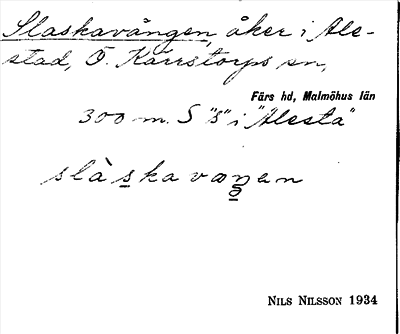 Slaskavången, åker i Ale-
stad, Ö. Kärrstorps sn,
Färs hd, Malmöhus län
300 m. S "s" i "Alesta"
slàskavaŋen
NILS NILSSON 1934